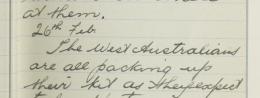 at them.
26th Feb
The West Australians
are all packing up
their kit as they expect